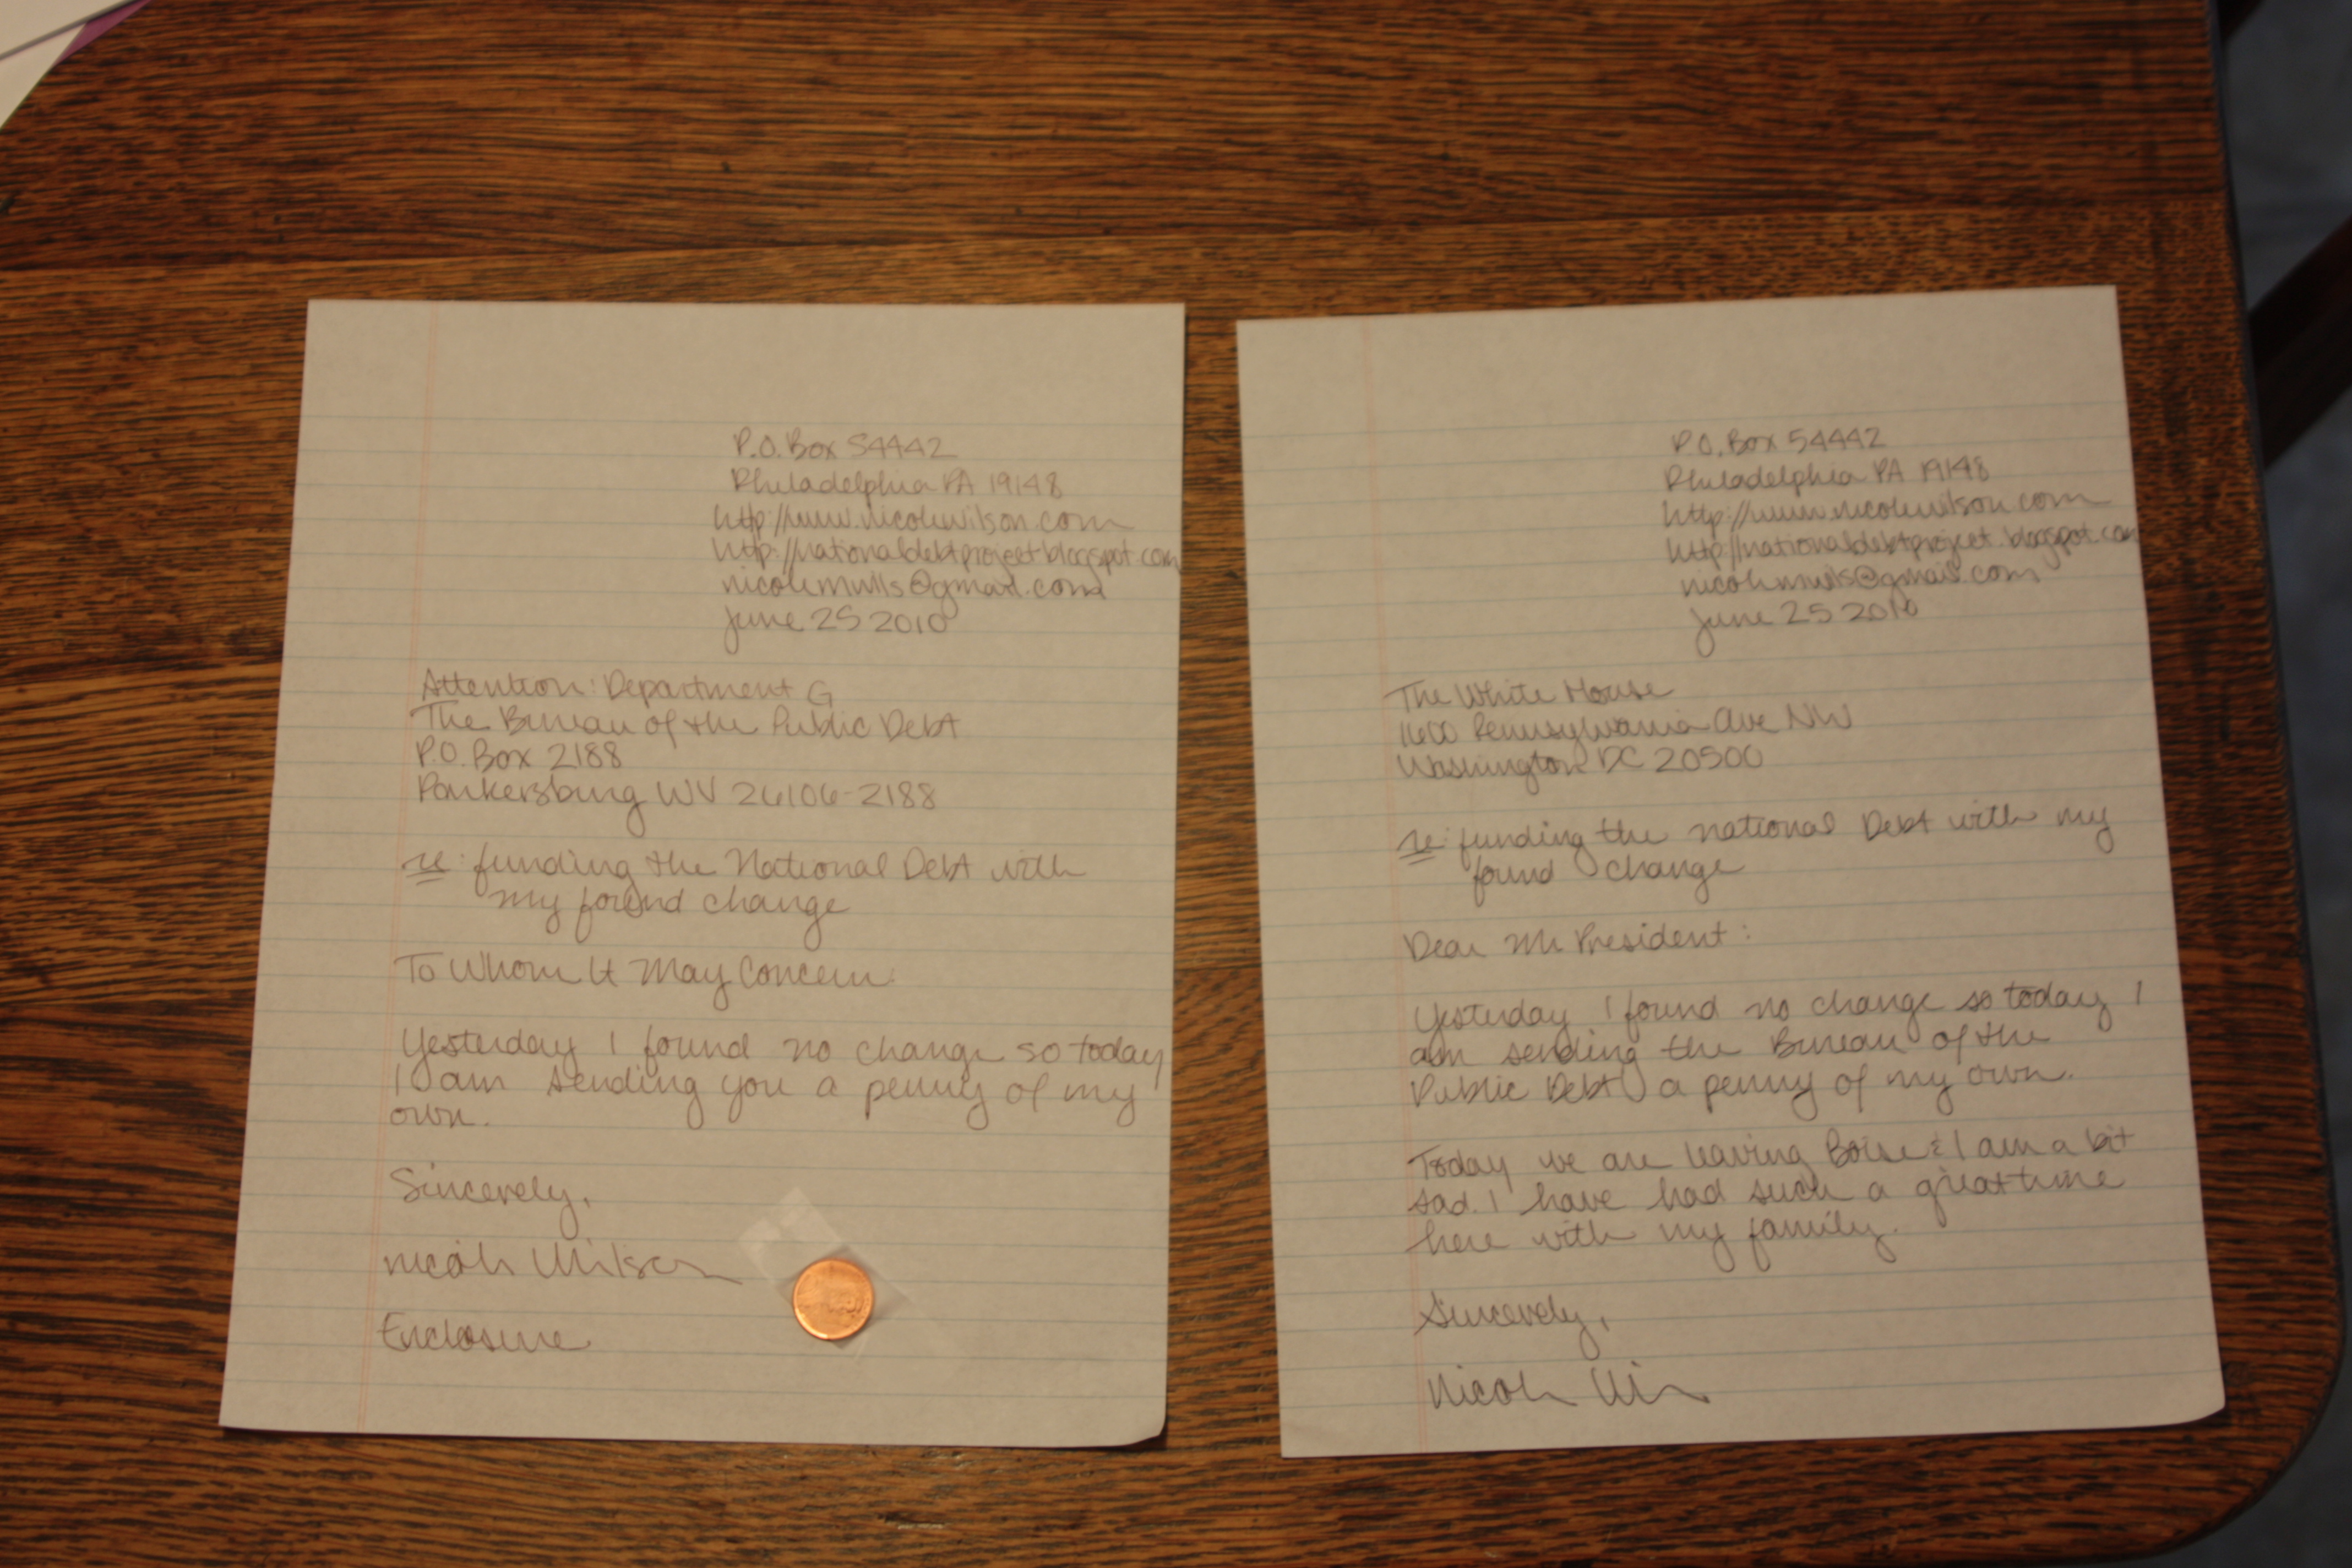 P.O. Box 54442
Philadelphia PA 19148
http://www.nicolewilson.com
http://nationaldebtproject.blogspot.com
nicolemwils@gmail.com
June 25 2010
Attention: Department G
The Bureau of the Public Debt
P.O. Box 2188
Parkersburg WV 26106-2188
re: funding the National Debt with
my found change
To Whom It May Concern:
Yesterday I found no change so today
I am sending you a penny of my
own.
Sincerely,
Nicole Wilson
Enclosure
P.O. Box 54442
Philadelphia PA 19148
http://www.nicolewilson.com
http://nationaldebtproject.blogspot.com
nicolemwils@gmail.com
June 25 2010
The White House
1600 Pennsylvania Ave NW
Washington DC 20500
re: funding the national Debt with my
found change
Dear Mr President:
Yesterday I found no change so today I
am sending the Bureau of the
Public Debt a penny of my own.
Today we are leaving Boise & I am a bit
sad. I have had such a great time
here with my family.
Sincerely,
Nicole Wilson